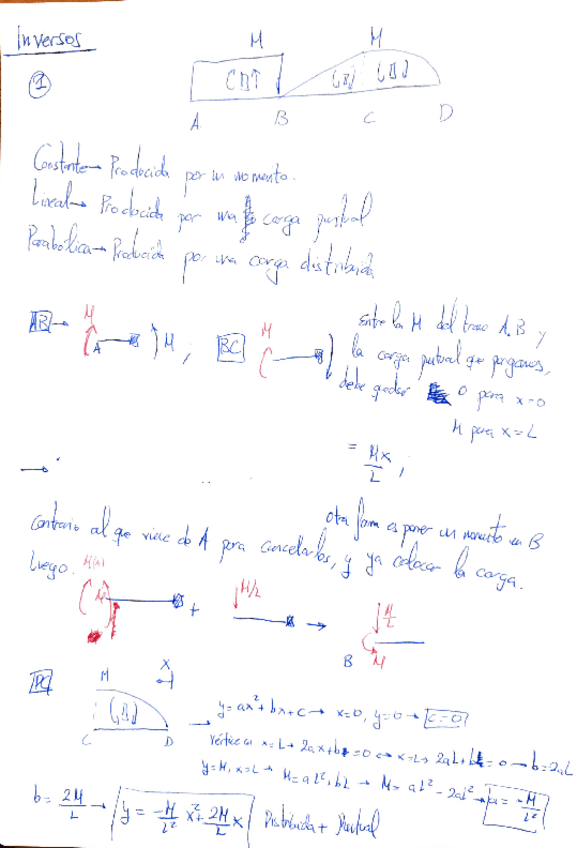 Inversos
M M
①
A B C D
Constante → Producida por un momento.
Lineal → Producida por una carga puntual
Parabólica → Producida por una carga distribuida
AB → M A M ; BC M
Entre la M del tramo AB y
la carga puntual que pongamos,
debe quedar 0 para x=0
M para x=L
= Mx/L ;
otra forma es poner un momento en B
contrario al que viene de A para cancelarlos, y ya colocar la carga.
luego.
M + M/L → M/L
B M
M X
C D
y = ax² + bx + c → x=0, y=0 → c=0
Vértice en x=L → 2ax+b=0 → x=L → 2aL+b=0 → b=2aL
y=M, x=L → M=aL²+bL → M=aL²-2aL² → a=-M/L²
b = 2M/L → y = -M/L² x² + 2M/L x Distribuida + Puntual